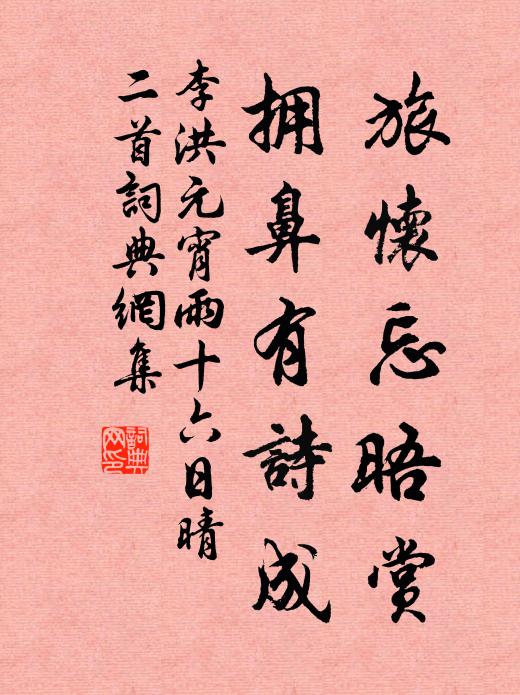 旅懷忘晤賞
拥鼻有詩成
李洪元宵雨十六日晴
二首詞典網集
詞典
网印